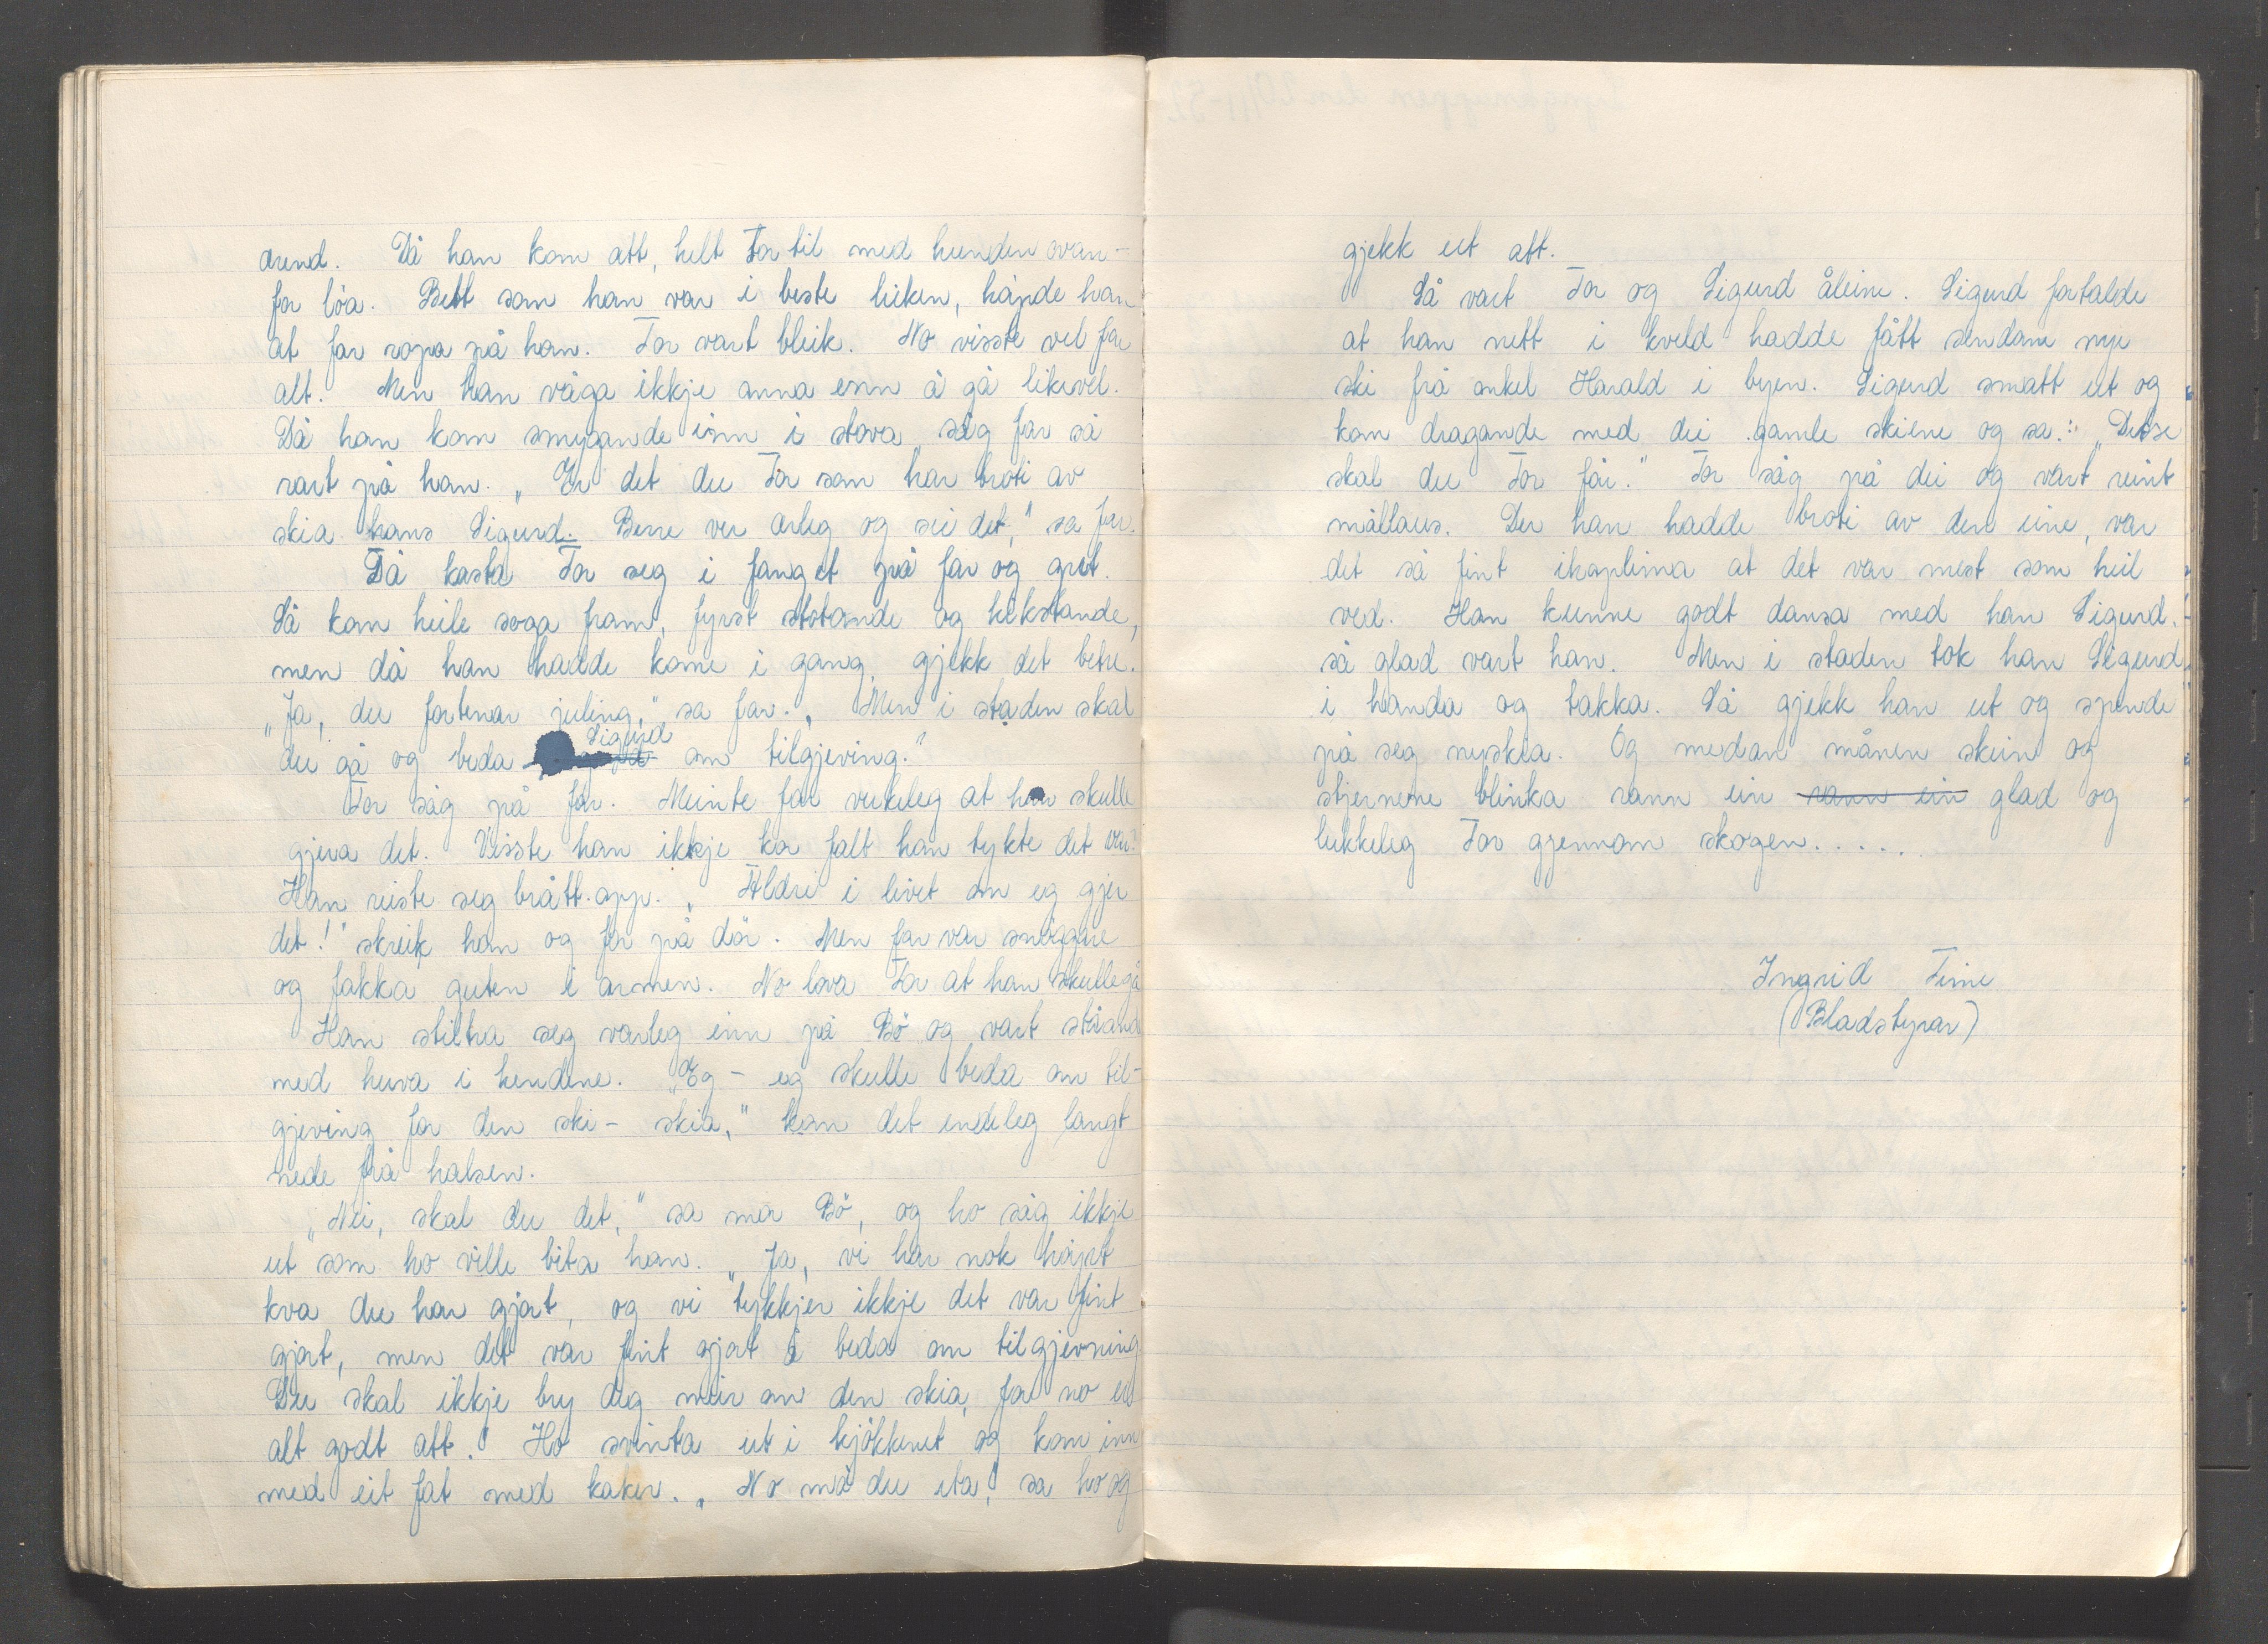 ærend. Då han kom att, helt Tor til med hunden ovan-
for löa. Bett som han var i beste leiken, håyrde han
at far ropa på han. Tor vart bleik. No visste vel far
alt. Men han våga ikkje anna enn å gå likevel.
Då han kom smygande inn i stova såg far så
rart på han. „Er det du Tor som har broti av
skia hans Sigurd. Berre ver ærleg og sei det," sa far.
Då kasta Tor seg i fanget på far og gret.
Så kom heile soga fram, fyrst stotande og hikstande,
men då han hadde kome i gang, gjekk det betre.
„Ja, du fortenar juling," sa far. „Men i staden skal
du gå og beda Sigurd om tilgjeving."
Tor såg på far. Meinte far verkeleg at han skulle
gjera det. Visste han ikkje kor falt han tykte det var?
Han reiste seg brått opp. „Aldri i livet om eg gjer
det!" skreik han og for på dör. Men far var snöggare
og fakka guten i armen. No lova Tor at han skulle gå
Han stiltra seg varleg inn på Bö og vart ståand
med huva i hendene. "Eg - eg skulle beda om til-
gjeving for den ski - skia," kom det endeleg langt
nede frå halsen.
„Nei, skal du det," sa mor Bö, og ho såg ikkje
ut som ho ville bita han. „Ja, vi har nok håyrt
kva du har gjort, og vi tykkjer ikkje det var fint
gjort, men det var fint gjort å beda om tilgjevning
Du skal ikkje bry deg meir om den skia, for no er
alt godt att." Ho svinta ut i kjökkenet og kom inn
med eit fat med kaker. „No må du eta," sa ho og
gjekk ut att.
Så vart Tor og Sigurd åleine. Sigurd fortalde
at han nett i kveld hadde fått sendane nye
ski frå onkel Harald i byen. Sigurd smatt ut og
kom dragande med dei gamle skiene og sa: „Desse
skal du Tor få." Tor såg på dei og vart reint
mållaus. Der han hadde broti av den eine, var
det så fint ihoplima at det var mest som heil
ved. Han kunne godt dansa med han Sigurd,
så glad vart han. Men i staden tok han Sigurd
i handa og takka. Så gjekk han ut og spende
på seg nyskia. Og medan månen skein og
stjernene blinka rann ein rann ein glad og
lukkeleg Tor gjennom skogen......
Ingrid Time
(Bladstyrar)